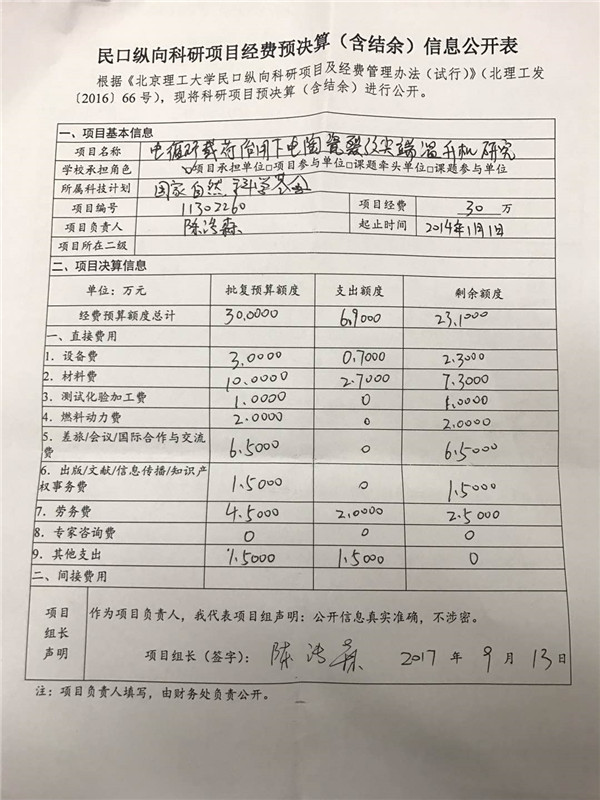 民口纵向科研项目经费预决算（含结余）信息公开表
根据《北京理工大学民口纵向科研项目及经费管理办法（试行）》（北理工发
〔2016〕66号），现将科研项目预决算（含结余）进行公开。
一、项目基本信息
项目名称 电循环载荷作用下电陶瓷裂纹尖端温升机研究
学校承担角色 □项目承担单位□项目参与单位□课题牵头单位□课题参与单位
所属科技计划 国家自然科学基金
项目编号 11302260 项目经费 30 万
项目负责人 陈浩森 起止时间 2014年1月1日
项目所在二级
二、项目决算信息
单位：万元 批复预算额度 支出额度 剩余额度
经费预算额度总计 30.0000 6.9000 23.1000
一、直接费用
1．设备费 3.0000 0.7000 2.3000
2．材料费 10.0000 2.7000 7.3000
3．测试化验加工费 1.0000 0 1.0000
4．燃料动力费 2.0000 0 2.0000
5．差旅/会议/国际合作与交流
费 6.5000 0 6.5000
6．出版/文献/信息传播/知识产
权事务费 1.5000 0 1.5000
7．劳务费 4.5000 2.0000 2.5000
8．专家咨询费 0 0 0
9．其他支出 1.5000 1.5000 0
二、间接费用
项目
组长
声明
作为项目负责人，我代表项目组声明：公开信息真实准确，不涉密。
项目组长（签字）： 陈浩森 2017 年 9 月 13 日
注：项目负责人填写，由财务处负责公开。